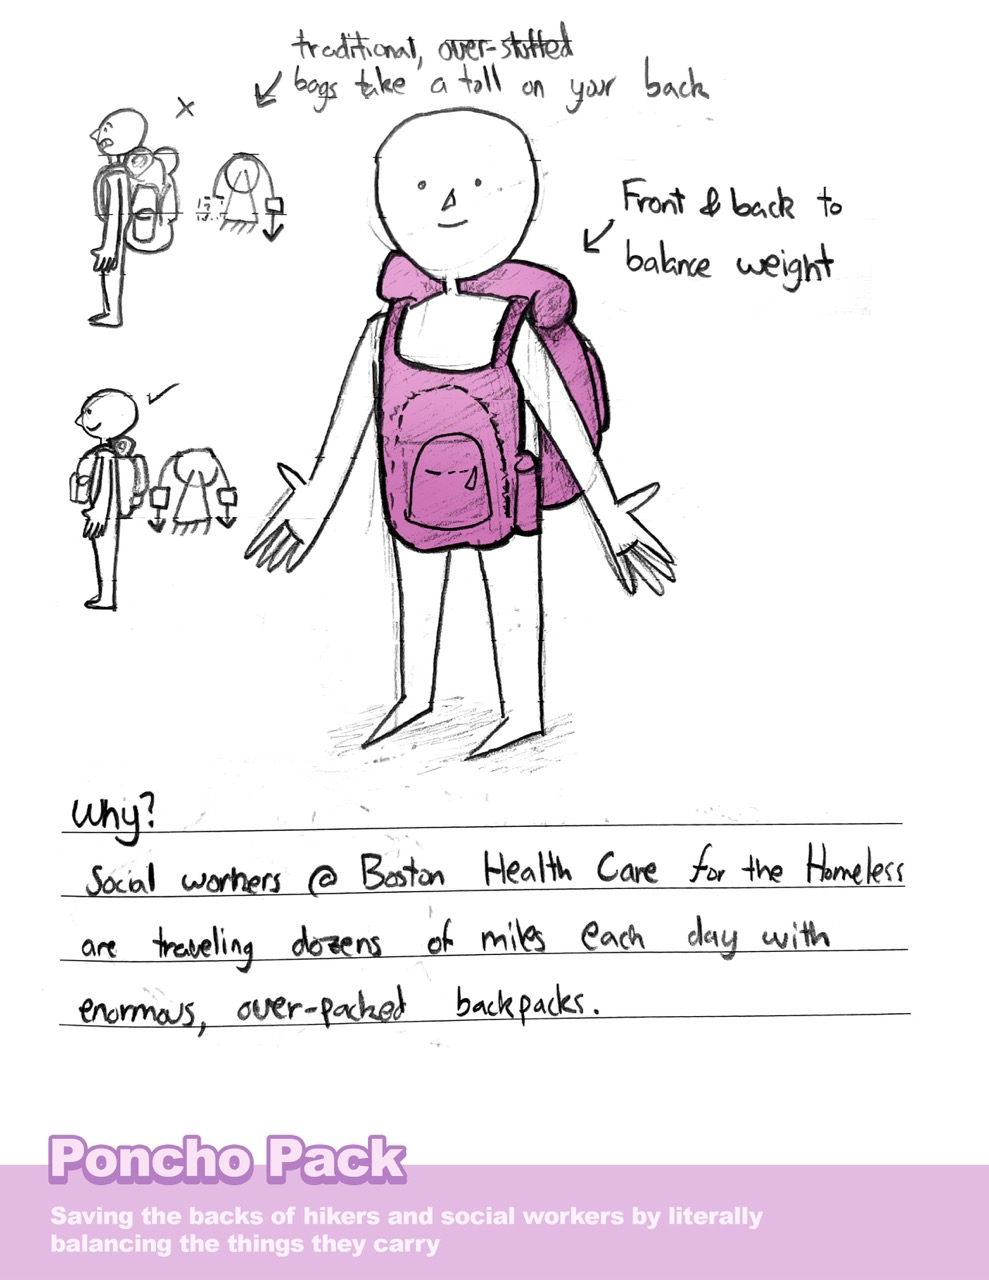 traditional, over-stuffed
bags take a toll on your back
Front & back to
balance weight
Why?
Social workers @ Boston Health Care for the Homeless
are traveling dozens of miles each day with
enormous, over-packed backpacks.
Poncho Pack
Saving the backs of hikers and social workers by literally
balancing the things they carry